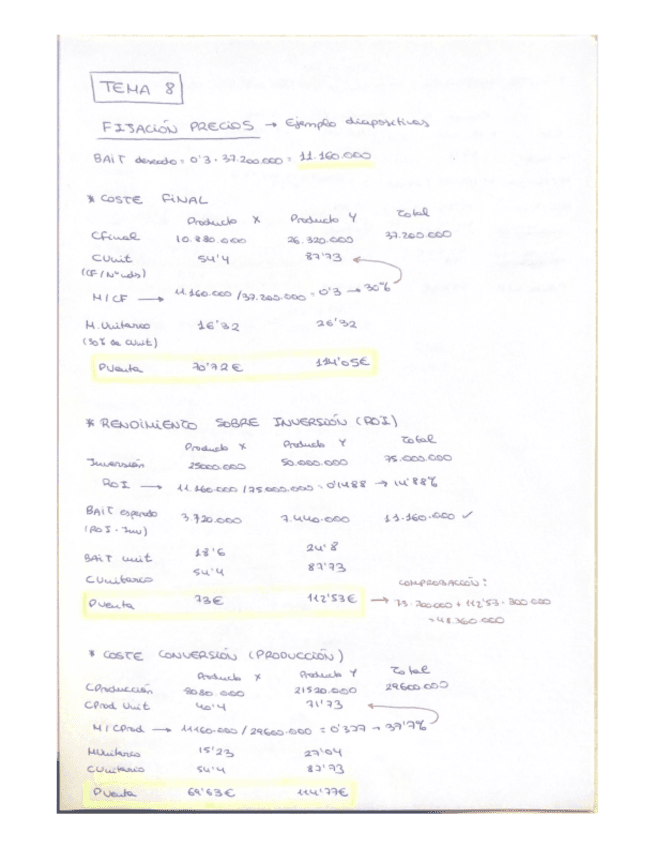 TEMA 8
FIJACIÓN PRECIOS → Ejemplo diapositivas
BAIT deseado = 0'3 · 37.200.000 = 11.160.000
* COSTE FINAL
Producto X Producto Y Total
CFinal 10.880.000 26.320.000 37.200.000
CUnit 54'4 87'73
(CF/Nº uds)
M/CF → 11.160.000/37.200.000 = 0'3 → 30%
M. Unitario 16'32 26'32
(30% de CUnit)
PVenta 70'72€ 114'05€
* RENDIMIENTO SOBRE INVERSIÓN (ROI)
Producto X Producto Y Total
Inversión 25000.000 50.000.000 75.000.000
ROI → 11.160.000/75000.000 = 0'1488 → 14'88%
BAIT esperado 3.720.000 7.440.000 11.160.000 ✓
(ROI · Inv)
BAIT unit 18'6 24'8
CUnitarico 54'4 87'73
PVenta 73€ 112'53€ → 73·200000 + 112'53·300000
COMPROBACIÓN:
= 48.360.000
* COSTE CONVERSIÓN (PRODUCCIÓN)
Producto X Producto Y Total
CProducción 8080.000 21520.000 29600.000
CProd Unit 40'4 71'73
M/CProd → 11160.000/29600.000 = 0'377 → 37'7%
MUnitario 15'23 27'04
CUnitario 54'4 87'73
PVenta 69'63€ 114'77€